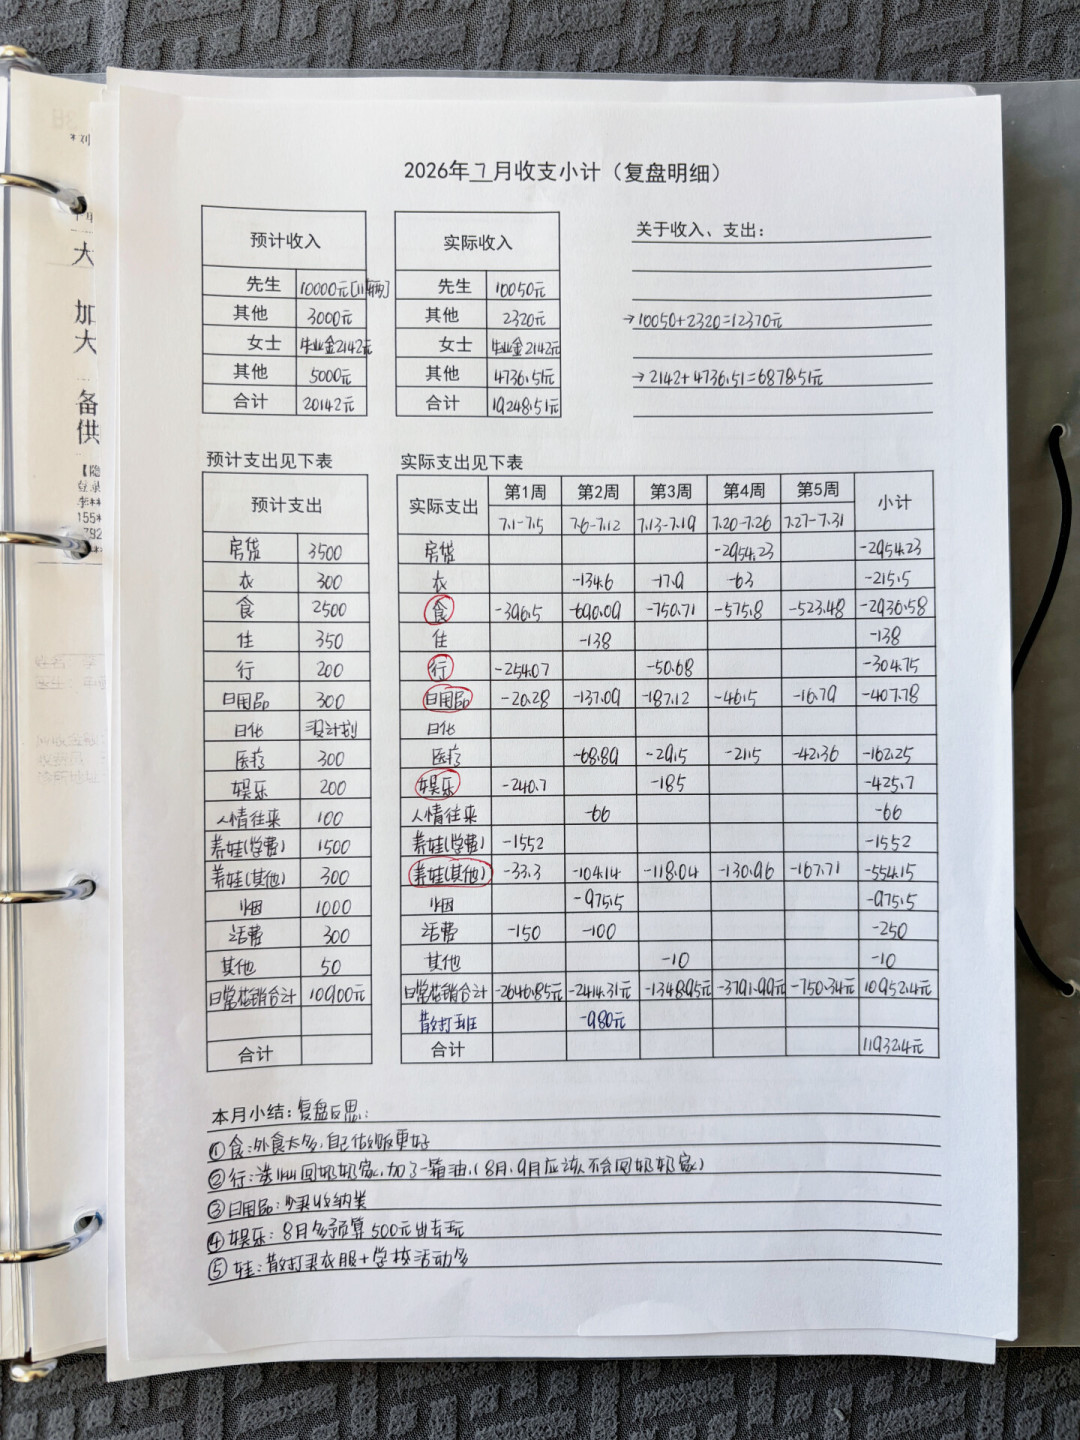 2026年7月收支小计（复盘明细）
预计收入
先生 10000元[11辆]
其他 3000元
女士 失业金2142元
其他 5000元
合计 20142元
实际收入
先生 10050元
其他 2320元
女士 失业金2142元
其他 4736.51元
合计 19248.51元
关于收入、支出：
→10050+2320=12370元
→2142+4736.51=6878.51元
预计支出见下表
预计支出
房贷 3500
衣 300
食 2500
住 350
行 200
日用品 300
日化 没计划
医疗 300
娱乐 200
人情往来 100
养娃(学费) 1500
养娃(其他) 300
烟 1000
话费 300
其他 50
日常核销合计 10900元
合计
实际支出见下表
实际支出 第1周 第2周 第3周 第4周 第5周 小计
7.1-7.5 7.6-7.12 7.13-7.19 7.20-7.26 7.27-7.31
房贷 -2954.23 -2954.23
衣 -134.6 -17.9 -63 -215.5
食 -396.5 -690.09 -750.71 -575.8 -523.48 -2936.58
住 -138 -138
行 -254.07 -50.68 -304.75
日用品 -20.28 -137.09 -187.12 -46.5 -16.79 -407.78
日化
医疗 -68.89 -29.5 -21.5 -42.36 -162.25
娱乐 -240.7 -185 -425.7
人情往来 -66 -66
养娃(学费) -1552 -1552
养娃(其他) -33.3 -104.14 -118.04 -130.96 -167.71 -554.15
烟 -975.5 -975.5
话费 -150 -100 -250
其他 -10 -10
日常核销合计 -2646.85元 -2414.31元 -1348.95元 -3791.99元 -750.34元 10952.4元
散打班 -980元
合计 11932.4元
本月小结：复盘反思：
①食：外食太多，自己做饭更好
②行：送娃回奶奶家，加了一箱油，(8月、9月应该不会回奶奶家)
③日用品：少买收纳类
④娱乐：8月多预算500元出去玩
⑤娃：散打买衣服+学校活动多
大
加
大
备
供
155*